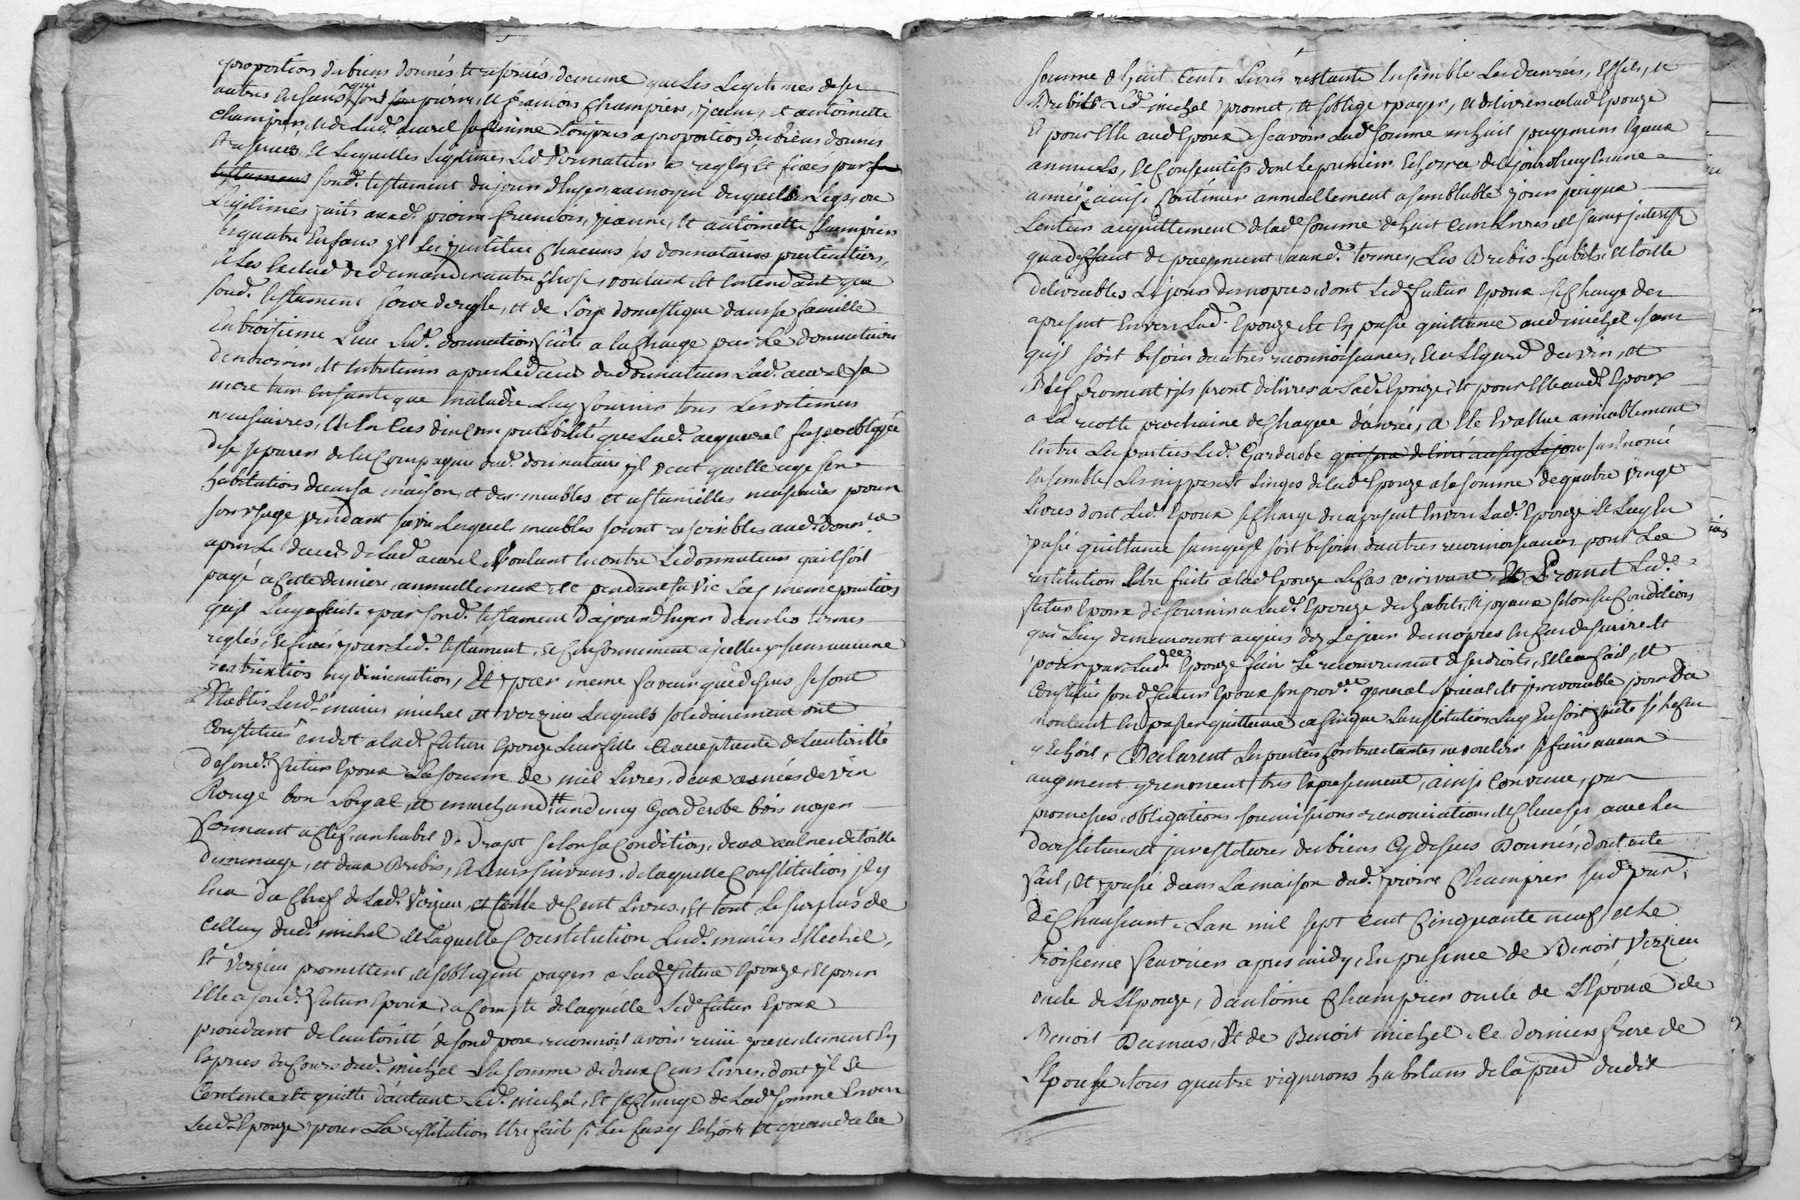 proportion des biens donnés et reservés, de meme que les legitimes de ses
autres enfans que sont pierre, et francois Champier, jeanne, et antoinette
Champier, et de Lad. aurel sa femme toujours a proportion des biens donnés
et reservés et lesquelles legitimes Led. donnateur a reglés et fixés par
testament sond. testament du jour d'hyer, au moyen desquels legs, ou
Legitimes faits auxd. pierre francois, jeanne, et antoinette Champier
ses quatre enfans il les institue chacuns ses donnataires particuliers,
et les exclud de demander autre chose, voulant et entendant que
sond. testament serve de regle, et de Loix domestique dans sa famille
En troisieme Lieu Lad. donnation faite a la charge par Le donnataire
de nourrir et entretenir apres le deces dud. donnateur Lad. aurel sa
mere tant en santé que maladie Luy fournir tous Les alimens
necessaires, et en cas d'incompatibilité que Lad. aurel fusse obligée
de se separer de la Compagnie dud. donnataire il veut quelle aye son
habitation dans sa maison, et des meubles et ustancilles necessaires pour
son usage pendant sa vie Lesquels meubles seront reversibles aud. donn.re
apres Le deces de Lad. aurel, Voulant en outre Le donnateur quil soit
payé a cette derniere annuellement et pendant sa vie Les meme pentions
quil Luy a faite par sond. testament du jour d'hyer dans les termes
reglés, et fixés par Led. testament, et Conformement a icelluy sans aucune
restriction ny diminution, Et par meme faveur que dessus se sont
Etablis Lesd. mariés michel et Verzieu Lesquels solidairement ont
Constitué en dot a lad. future Epouze Leur fille et acceptante de L'autorité
de sond. futur Epoux La somme de mil Livres, deux asnées de vin
Rouge bon Loyal, et marchand, un demy Garderobe bois noyer
fermant a clef, un habit de drapt selon sa Condition, deux aulnes de toille
de menage, et deux Brebis, et Leurs suivans, de laquelle Constitution il y
en a du Chef de Lad. Verzieu celle de Cent Livres, Et tout Le surplus de
Celluy dud. michel, et laquelle Constitution Lesd. mariés Michel,
Et Verzieu promettent, et s'obligent payer a Lad. future Epouze, et pour
Elle a sond. futur Epoux, a Compte de laquelle Led. futur Epoux
procedant de l'autorité de sond. pere reconnoit avoir reçu presentement en
Especes du Cours dud. michel La somme de deux Cens Livres, dont il se
Contente et quitte d'autant Led. michel, Et se charge de Lad. somme Envers
Lad. Epouze pour La restitution Etre faite si Le cas y Echoit, et quand a la
somme d'huit Cents Livres restante Ensemble Les danrées, Effets, et
Brebis Led. michel promet, et s'oblige payer, et delivrer a lad. Epouze
Et pour Elle aud. Epoux Scavoir Lad. somme en huit payemens Egaux
annuels, et Consecutifs dont Le premier Echerra de ce jourdhuy En une
année, ainsi Continuer annuellement a semblable jour jusqua
Lentier acquittement de lad. somme de huit Cent Livres et sans interest
qua deffaut de payement auxd. termes, Les Brebis habits et toille
delivrables Le jour des nopces, dont Led. futur Epoux se charge des
apresent Envers Lad. Epouze, Et En passe quittance aud. michel sans
quil soit besoin d'autres reconnoissances, et a l'Egard du vin, et
Bled froment ils seront delivrés a Lad. Epouze, et pour Elle aud. Epoux
a La recolte prochaine de Chaque danrée, a Eté Evalue amiablement
Entre Les parties Led. Garderobe qui sera delivré aussy Le jour susnomé
Ensemble Les nippes et Linges de lad. Epouze a la somme de quatre vingt
Livres dont Led. Epoux se charge des apresent Envers Lad. Epouze Et Luy En
passe quittance sans quil soit besoin d'autres reconnoissances pour La
restitution Etre faite a lad. Epouze Le Cas arrivant, Et Promet Led.
futur Epoux de fournir a Lad. Epouze des habits, et joyaux selon sa Condition
qui Luy demeureront acquis des Le jour des nopces En Cas de survie Et
pour par Lad. Epouze faire Le recouvrement de ses droits, Elle a fait, et
Constitué sond. futur Epoux son procr. general special et irrevocable pour du
montant En passer quittance a Charge que la restitution Luy En soit faite si Le Cas
y Echoit, Declarent Les parties Contractantes ne vouloir se faire aucun
augment y renoncent tres Expressement, ainsi Convenu, par
promesses, obligations, soumissions, renonciations, et Clauses, avec les
devestitures et investitures des biens Cy dessus Donnés, dont acte
fait, et passé dans La maison dud. pierre Champier sud. par.
de Chaussant, L'an mil sept cent Cinquante neuf, et Le
troisieme fevrier apres midy, En presence de Benoit Verzieu
oncle de L'Epouze, d'antoine Champier oncle de L'Epoux de
Benoit Dumas, Et de Benoit michel Ce dernier frere de
L'Epouse tous quatre vignerons habitans de la par. dudit